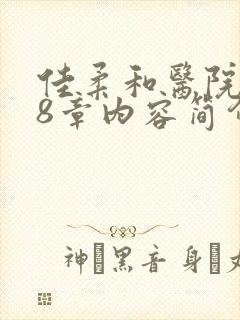 佳柔和醫院
8章内容简介
神 黑音身